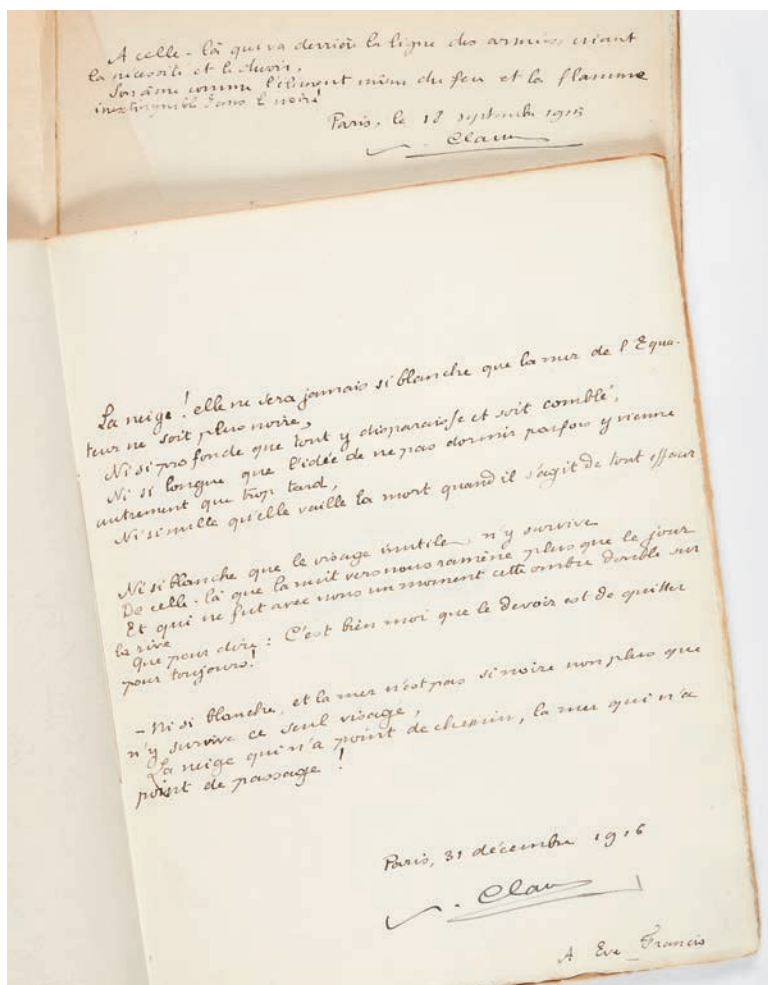 A celle-là qui va derrière la ligne des armées, criant
la nécessité et le devoir,
Son âme comme l'élément même du feu et la flamme
inextinguible dans le noir!
Paris, le 18 septembre 1915
Clau
La neige ! elle ne sera jamais si blanche que la mer de l'Equa-
teur ne soit plus noire,
Ni si profonde que tout y disparaisse et soit comblé,
Ni si longue que l'idée de ne pas dormir parfois y vienne
autrement que trop tard,
Ni si nulle qu'elle vaille la mort quand il s'agit de tout effacer
Ni si blanche que le visage inutile n'y survive
De celle-là que la nuit vers nous ramène plus que le jour
Et qui ne fut avec nous un moment cette ombre double sur
la rive
Que pour dire : C'est bien moi que le devoir est de quitter
pour toujours!
- Ni si blanche, et la mer n'est pas si noire non plus que
n'y survive ce seul visage,
La neige qui n'a point de chemin, la mer qui n'a
point de passage !
Paris, 31 décembre 1916
Clau
A Eve Francis